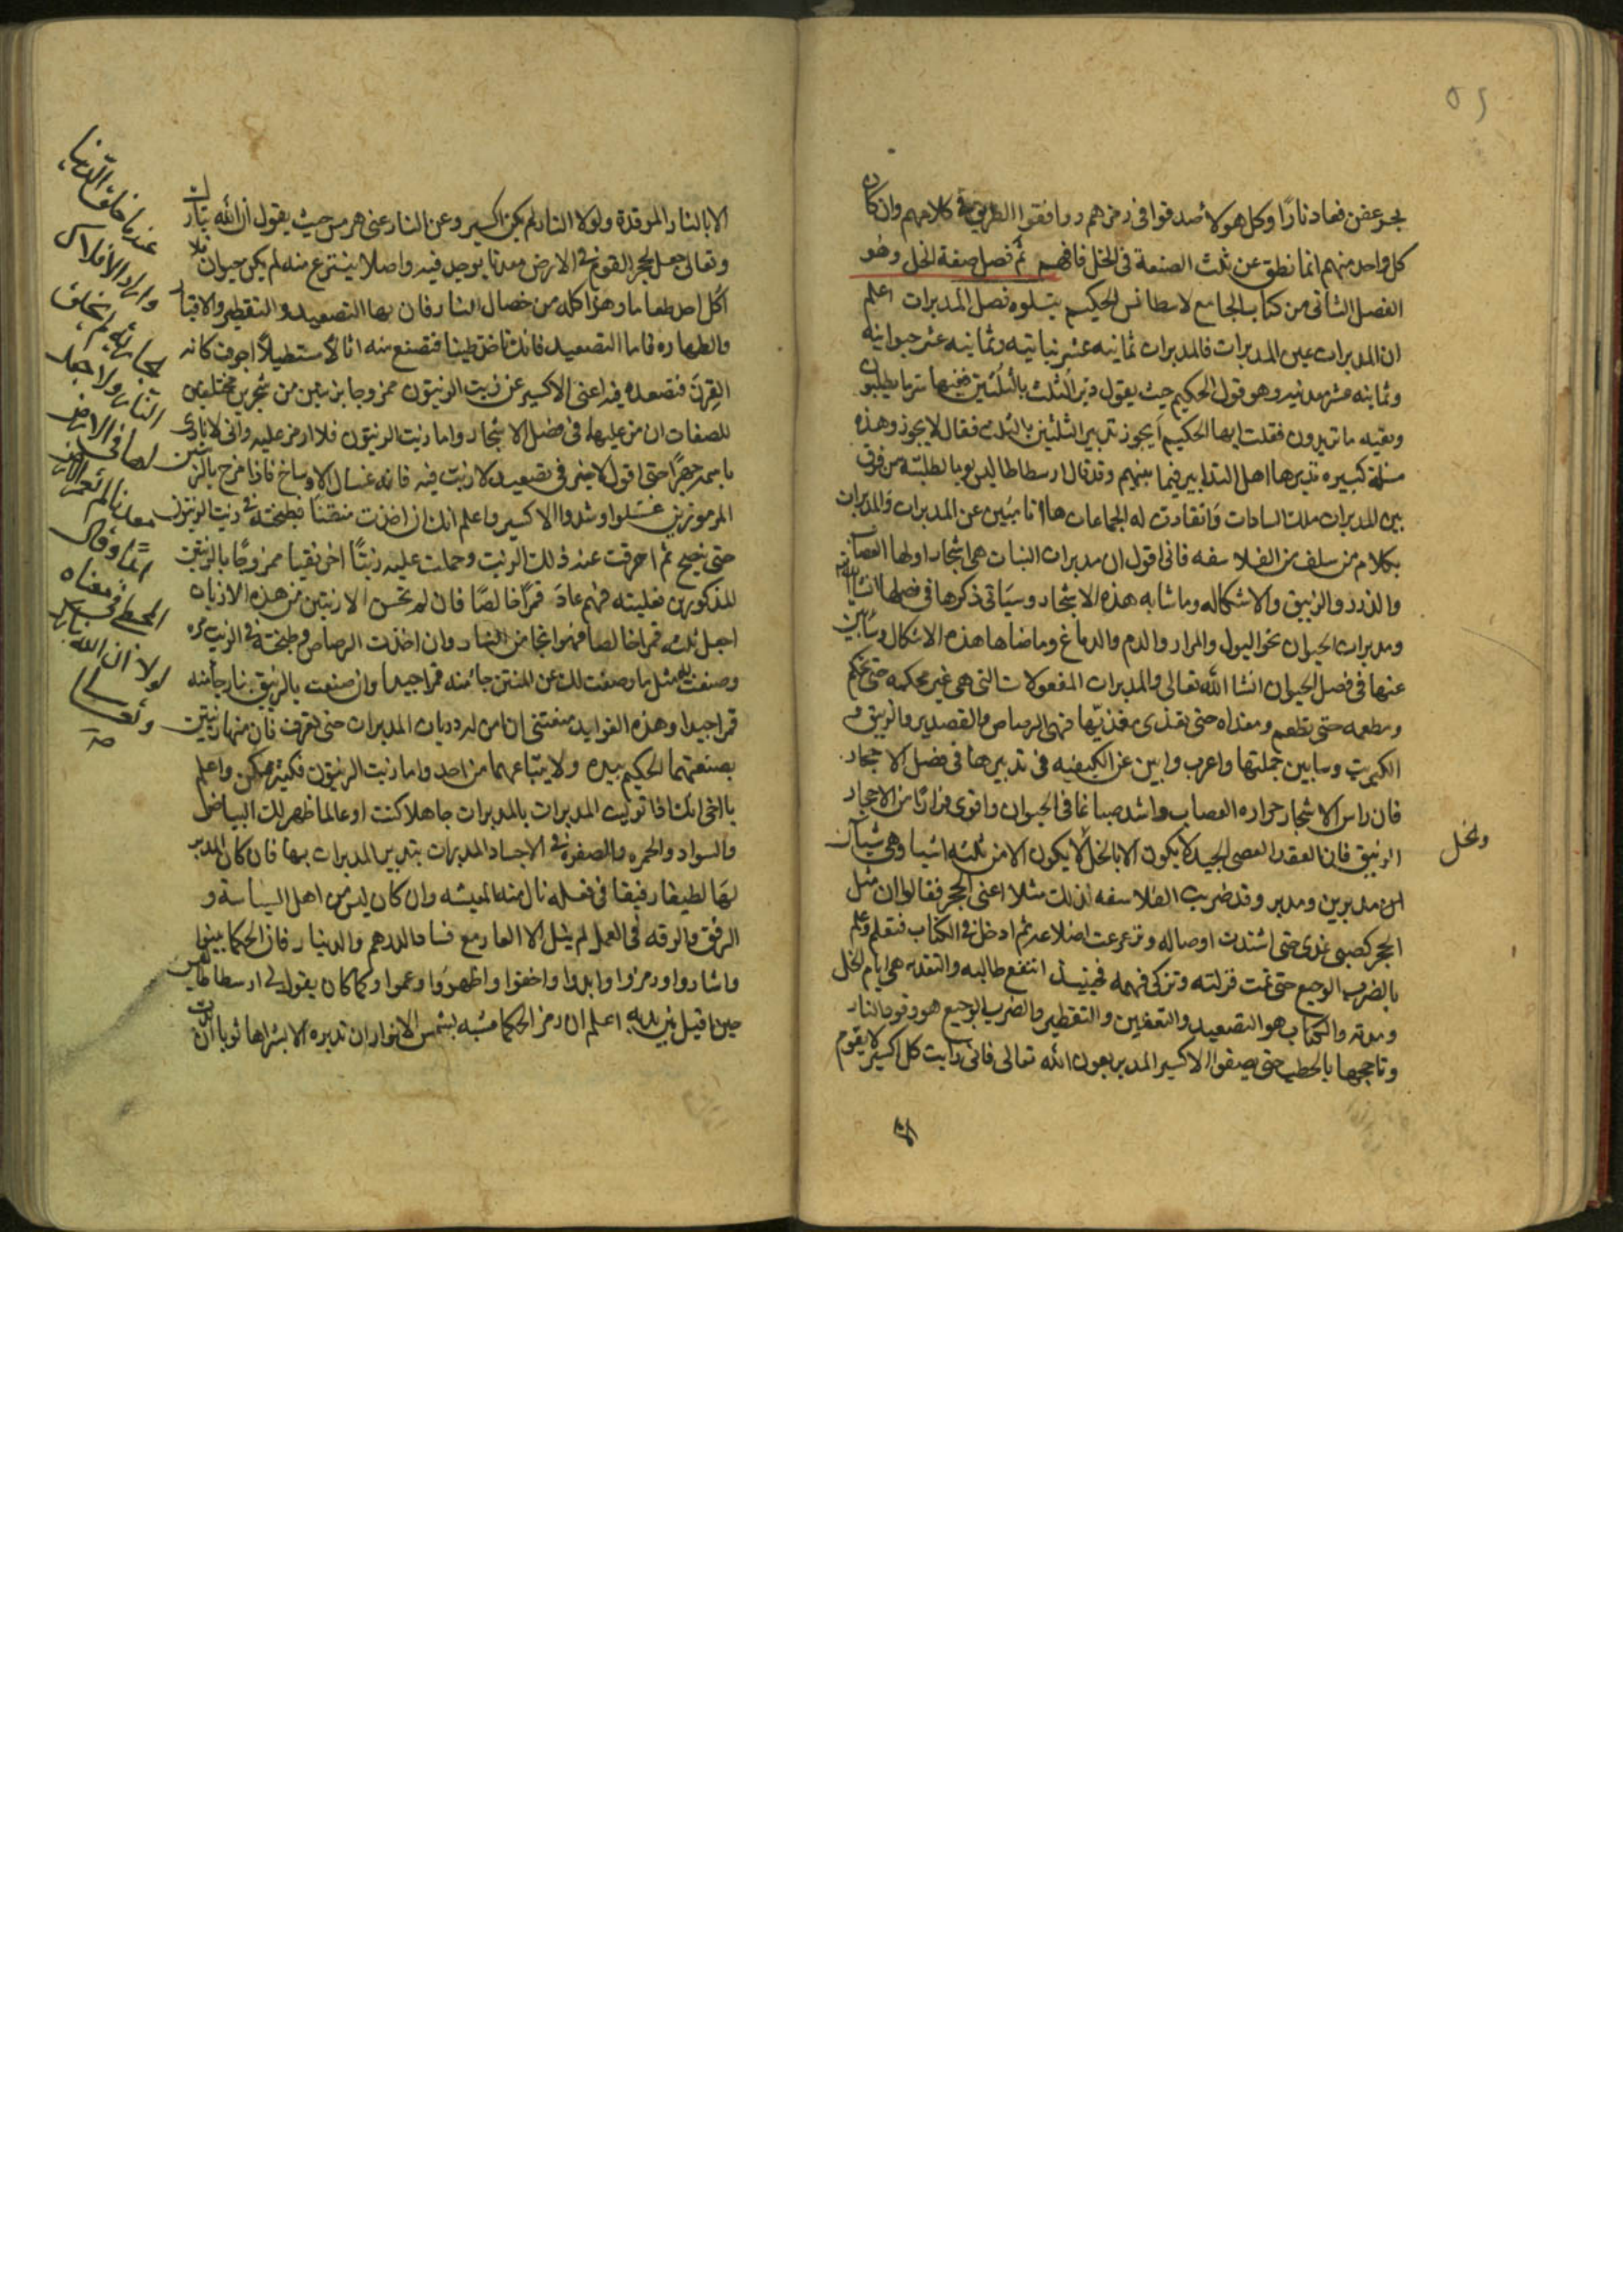 ٥٢
بحر عفن فصار نارًا وكل هولا صدقوا فى رمزهم ووافقوا الطريق فى كلامهم وان كان
كل واحد منهم انما نطق عن ثلث الصنعة فى الخل فافهم ثم فصل صفة الخل وهو
الفصل الثانى من كتاب الجامع لاسطانس الحكيم يتلوه فصل المدبرات اعلم
ان المدبرات عين المدبرات فالمدبرات ثمانيه عشر نباتيه وثمانيه عشر حيوانيه
وثمانيه عشر معدنيه وهو قول الحكيم حيث يقول دبر الثلث بالثلثين ففيها سر ما يطلبون
وبقيه ما تريدون فقلت ايها الحكيم ايجوز تدبير الثلثين بالثلث فقال لا يجوز وهذه
مسئلة كبيره تدبرها اهل التدابير فيما بينهم وقد قال ارسطاطاليس يوما لطلبته من فرق
بين المدبرات ملك السادات وانقادت له الجماعات ها انا مبين عن المدبرات والمدبرات
بكلام من سلف من الفلاسفه فانى اقول ان مدبرات النبات هى اشجار اولها العصاب
والذرد والزيبق والاشكاله وما شابه هذه الاشجار وسياتى ذكرها فى فصلها انشا الله
ومدبرات الحيوان نحو البول والمرار والدم والدماغ وما ضاها هذه الاشكال وسابين
عنها فى فصل الحيوان انشا الله تعالى والمدبرات المفعولات التى هى غير محكمه حتى تحكم
ومطعمه حتى تطعم ومغداه حتى تغذى مغذيها فهى الرصاص والقصدير والزيبق و
الكبريت وسابين جملتها واعرب وابين عن الكيفيه فى تدبيرها فى فصل الاحجار
فان راس الاشجار حراره العصاب واشد صباغا فى الحيوان واقوى فرارًا من الاحجار
الزيبق فان العقد العصى الجيد لا يكون الا بالخل لا يكون الا من ثلثه اشيا وهى شيآن
ونخل
من مدبرين ومدبر وقد ضربت الفلاسفه لذلك مثلا اعنى الحجر فقالوا ان مثل
الحجر كصبى غذى حتى اشتدت اوصاله وترعرعت اضلاعه ثم ادخل فى الكتاب فتعلم وعلم
بالضرب الوجيع حتى تمت قزلته وتزكى فهمه فحينيذ انتفع طالبه والتغديه هى ايام الخل
ومدته والكتاب هو التصعيد والتعفين والتقطير والضرب الوجيع هو وقود النار
وتاججها بالحطب حتى يصفوا الاكسير المدبر بعون الله تعالى فانى رايت كل اكسير لا يقوم
الا بالنار الموقدة ولولا النار لم يكن اكسير وعن النار عنى هرمس حيث يقول ان الله تبارك
وتعالى جعل لحجر القوم فى الارض معدنا يوجد فيه واصلا ينتزع منه لم يكن حيوان فلا
اكل احد طعاما وهذا كله من خصال النار فان بها التصعيد والتقطير والاقبار
والطهاره فاما التصعيد فانك تاخذ طينا فتصنع منه انالا مستطيلاً اجوف كانه
القرن فتصعد فيه اعنى الاكسير عن زيت الزيتون ممزوجا بزيتين من شجرين مختلفين
للصفات ان مر عليها فى فصل الاشجار واما زيت الزيتون فلا ارمز عليه وانى لا نادى
باسمه جهرًا حتى اقول لا خير فى تصعيد لا زيت فيه فانه غسال الاوساخ فاذا مزج بالزيتين
المرموزين غسلوا وشدوا الاكسير واعلم انك ان اخذت منقنًا فطبخته فى زيت الزيتون
حتى ينصح ثم احرقت عنه ذلك الزيت وحملت عليه زيتًا اخر نقيا ممزوجًا بالزيتين
المذكورين فغليته فهم عاد قمرًا خالصًا فان لم تحسن الازيتين من هذه الازيات
اجعل ثلثه قمرا خالصا فهوا نجا من النار وان اخذت الرصاص وطبخته فى الزيت مره
وصنعت به مثل ما وصفت لك عن المنتن جا منه قمرا جيدا وان صنعت بالزيبق نار جا منه
قمرا جيدا وهذه الفوايد منعتنى ان امن
بصنعتهما الحكيم بيده ولا يبتاعهما من احد واما زيت الزيتون فكثير ممكن واعلم
يا اخى انك اذا توليت المدبرات بالمدبرات جاهلا كنت او عالما ظهر لك البياض
والسواد والحمره والصفره فى الاجساد المدبرات بتدبير المدبرات بها فان كان المدبر
لها لطيفا رفيقا فى فعله نال منه المعيشه وان كان ليس من اهل السياسة و
الرفق والرقه فى العمل لم ينل الا العار مع فساد الدرهم والدينار فان الحكما بينوا
واشاروا ورمزوا وابدوا واخفوا واظهروا وعموا وكما كان يقول لى ارسطاطاليس
حين اقبل بين يديه اعلم ان رمز الحكما مشبه بشمس الانوار ان تدبره الا بشراها ثوبا ان
عندما خلق الدنيا
وادار الافلاك
بحاريه لم يخلق
النار ولا جعل
لها فى الارض
معدنا لم تعمر الارض
ابدًا وقال
المحيطى معناه
لولا ان الله تبارك
وتعالى
صح